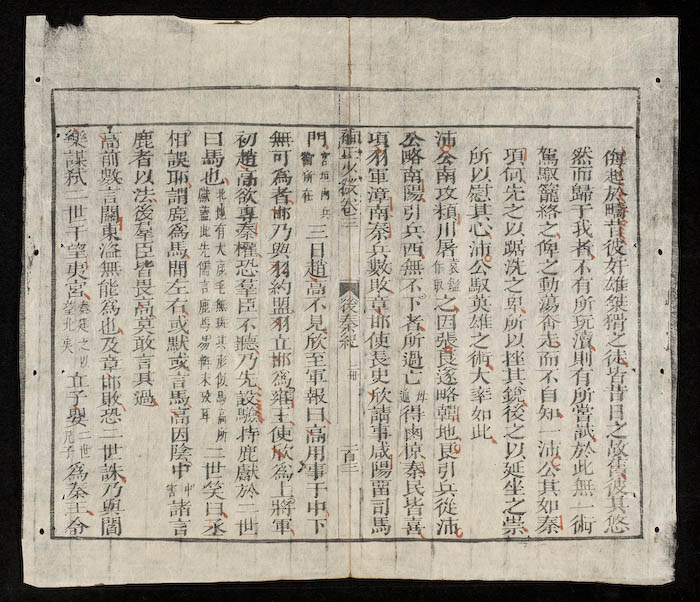 侮起於疇昔彼奸雄桀猾之徒皆昔日之敵讎彼其悠
然而歸于我者不有所玩瀆則有所嘗試於此無一術
駕馭籠絡之俾之動蕩奔走而不自知一沛公其如秦
項何先之以踞洗之卑所以挫其銳後之以延坐之崇
所以慰其心沛公馭英雄之術大率如此
沛公南攻潁川屠作取之因張良遂略韓地良引兵從沛
公略南陽引兵西無不下者所過亡毋通得鹵掠秦民皆喜
項羽軍漳南秦兵數敗章邯使長史欣請事咸陽留司馬
卷三 後秦紀 一百三
門宮垣內兵衛所在三日趙高不見欣至軍報曰高用事于中下
無可為者邯乃與羽約盟羽立邯為雍王使欣為上將軍
初趙高欲專秦權恐羣臣不聽乃先設驗持鹿獻於二世
曰馬也北地有大鹿毛無斑其形似馬高所獻蓋此先儒言鹿馬易辨未攷耳二世笑曰丞
相誤耶謂鹿為馬問左右或默或言馬高因陰中害諸言
鹿者以法後羣臣皆畏高莫敢言其過
高前數言關東盜無能為也及章邯敗恐二世誅乃與閻
樂謀弒二世于望夷宮秦建之以望北夷立子嬰二世為秦王分